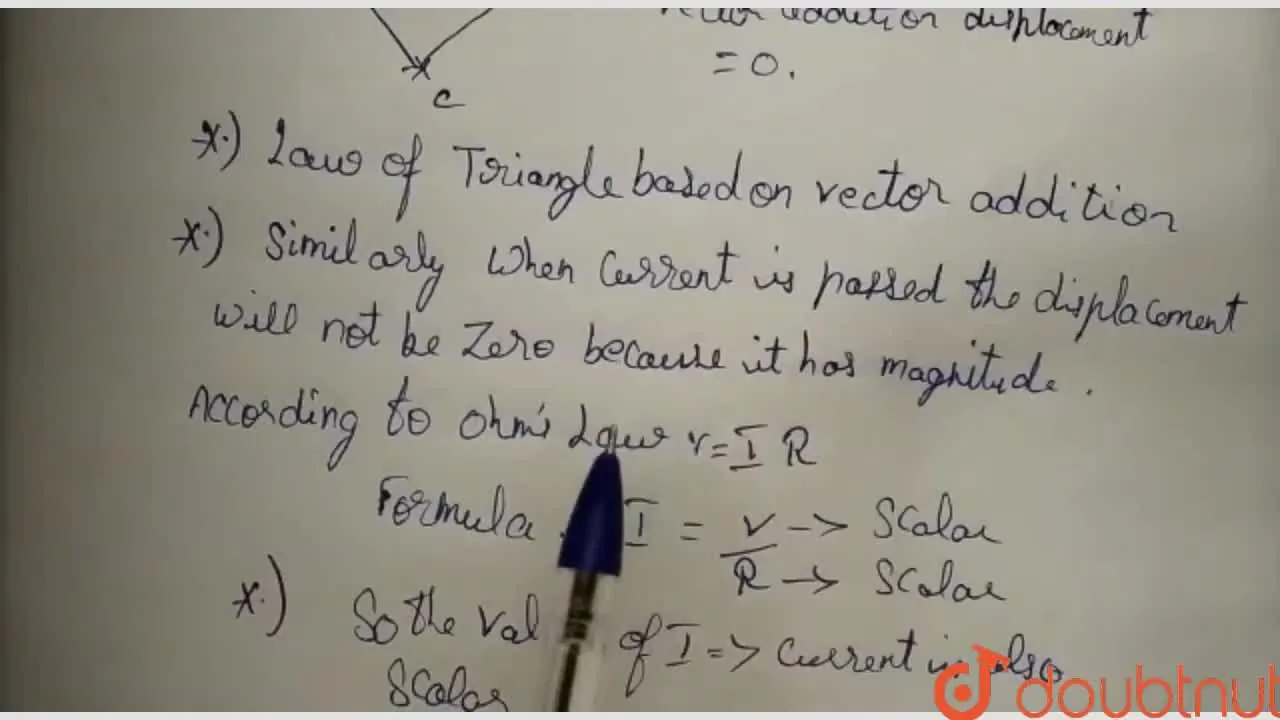 addition displacement
= 0.
C
*.) Law of Triangle based on vector addition
*.) Similarly when current is passed the displacement
will not be zero because it has magnitude.
According to ohm's Law V=IR
Formula I = V -> Scalar
R -> Scalar
*.) So the Val of I => Current is also
Scalar
doubtnut